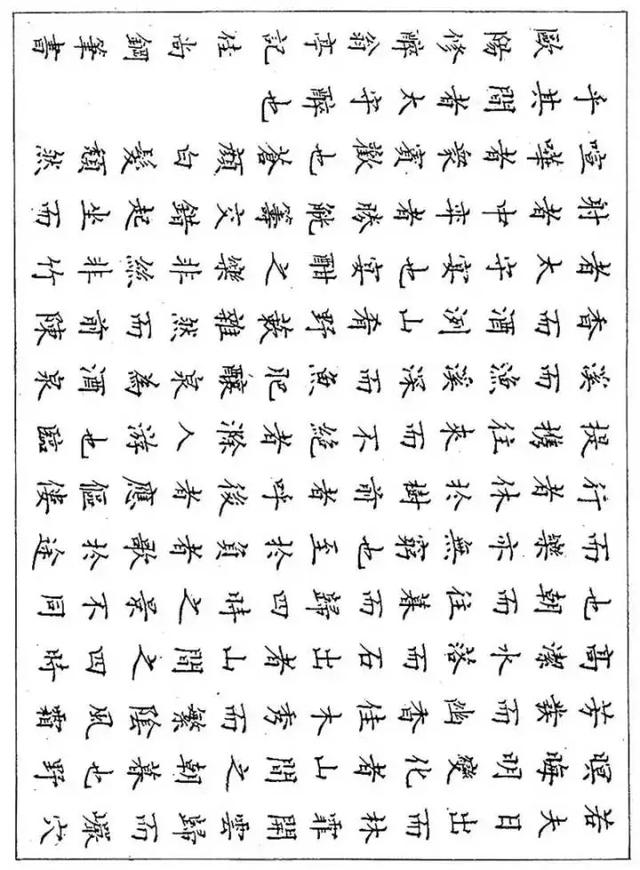 若夫日出而林霏開雲歸而巖穴
暝晦明變化者山間之朝暮也野
芳發而幽香佳木秀而繁陰風霜
高潔水落而石出者山間之四時
也朝而往暮而歸四時之景不同
而樂亦無窮也至於負者歌於途
行者休於樹前者呼後者應傴僂
提攜往來而不絕者滁人游也臨
溪而漁溪深而魚肥釀泉為酒泉
香而酒洌山肴野蔌雜然而前陳
者太守宴也宴酣之樂非絲非竹
射者中弈者勝觥籌交錯起坐而
喧嘩者衆賓歡也蒼顏白髮頹然
乎其間者太守醉也
歐陽修醉翁亭記佳尚鋼筆書